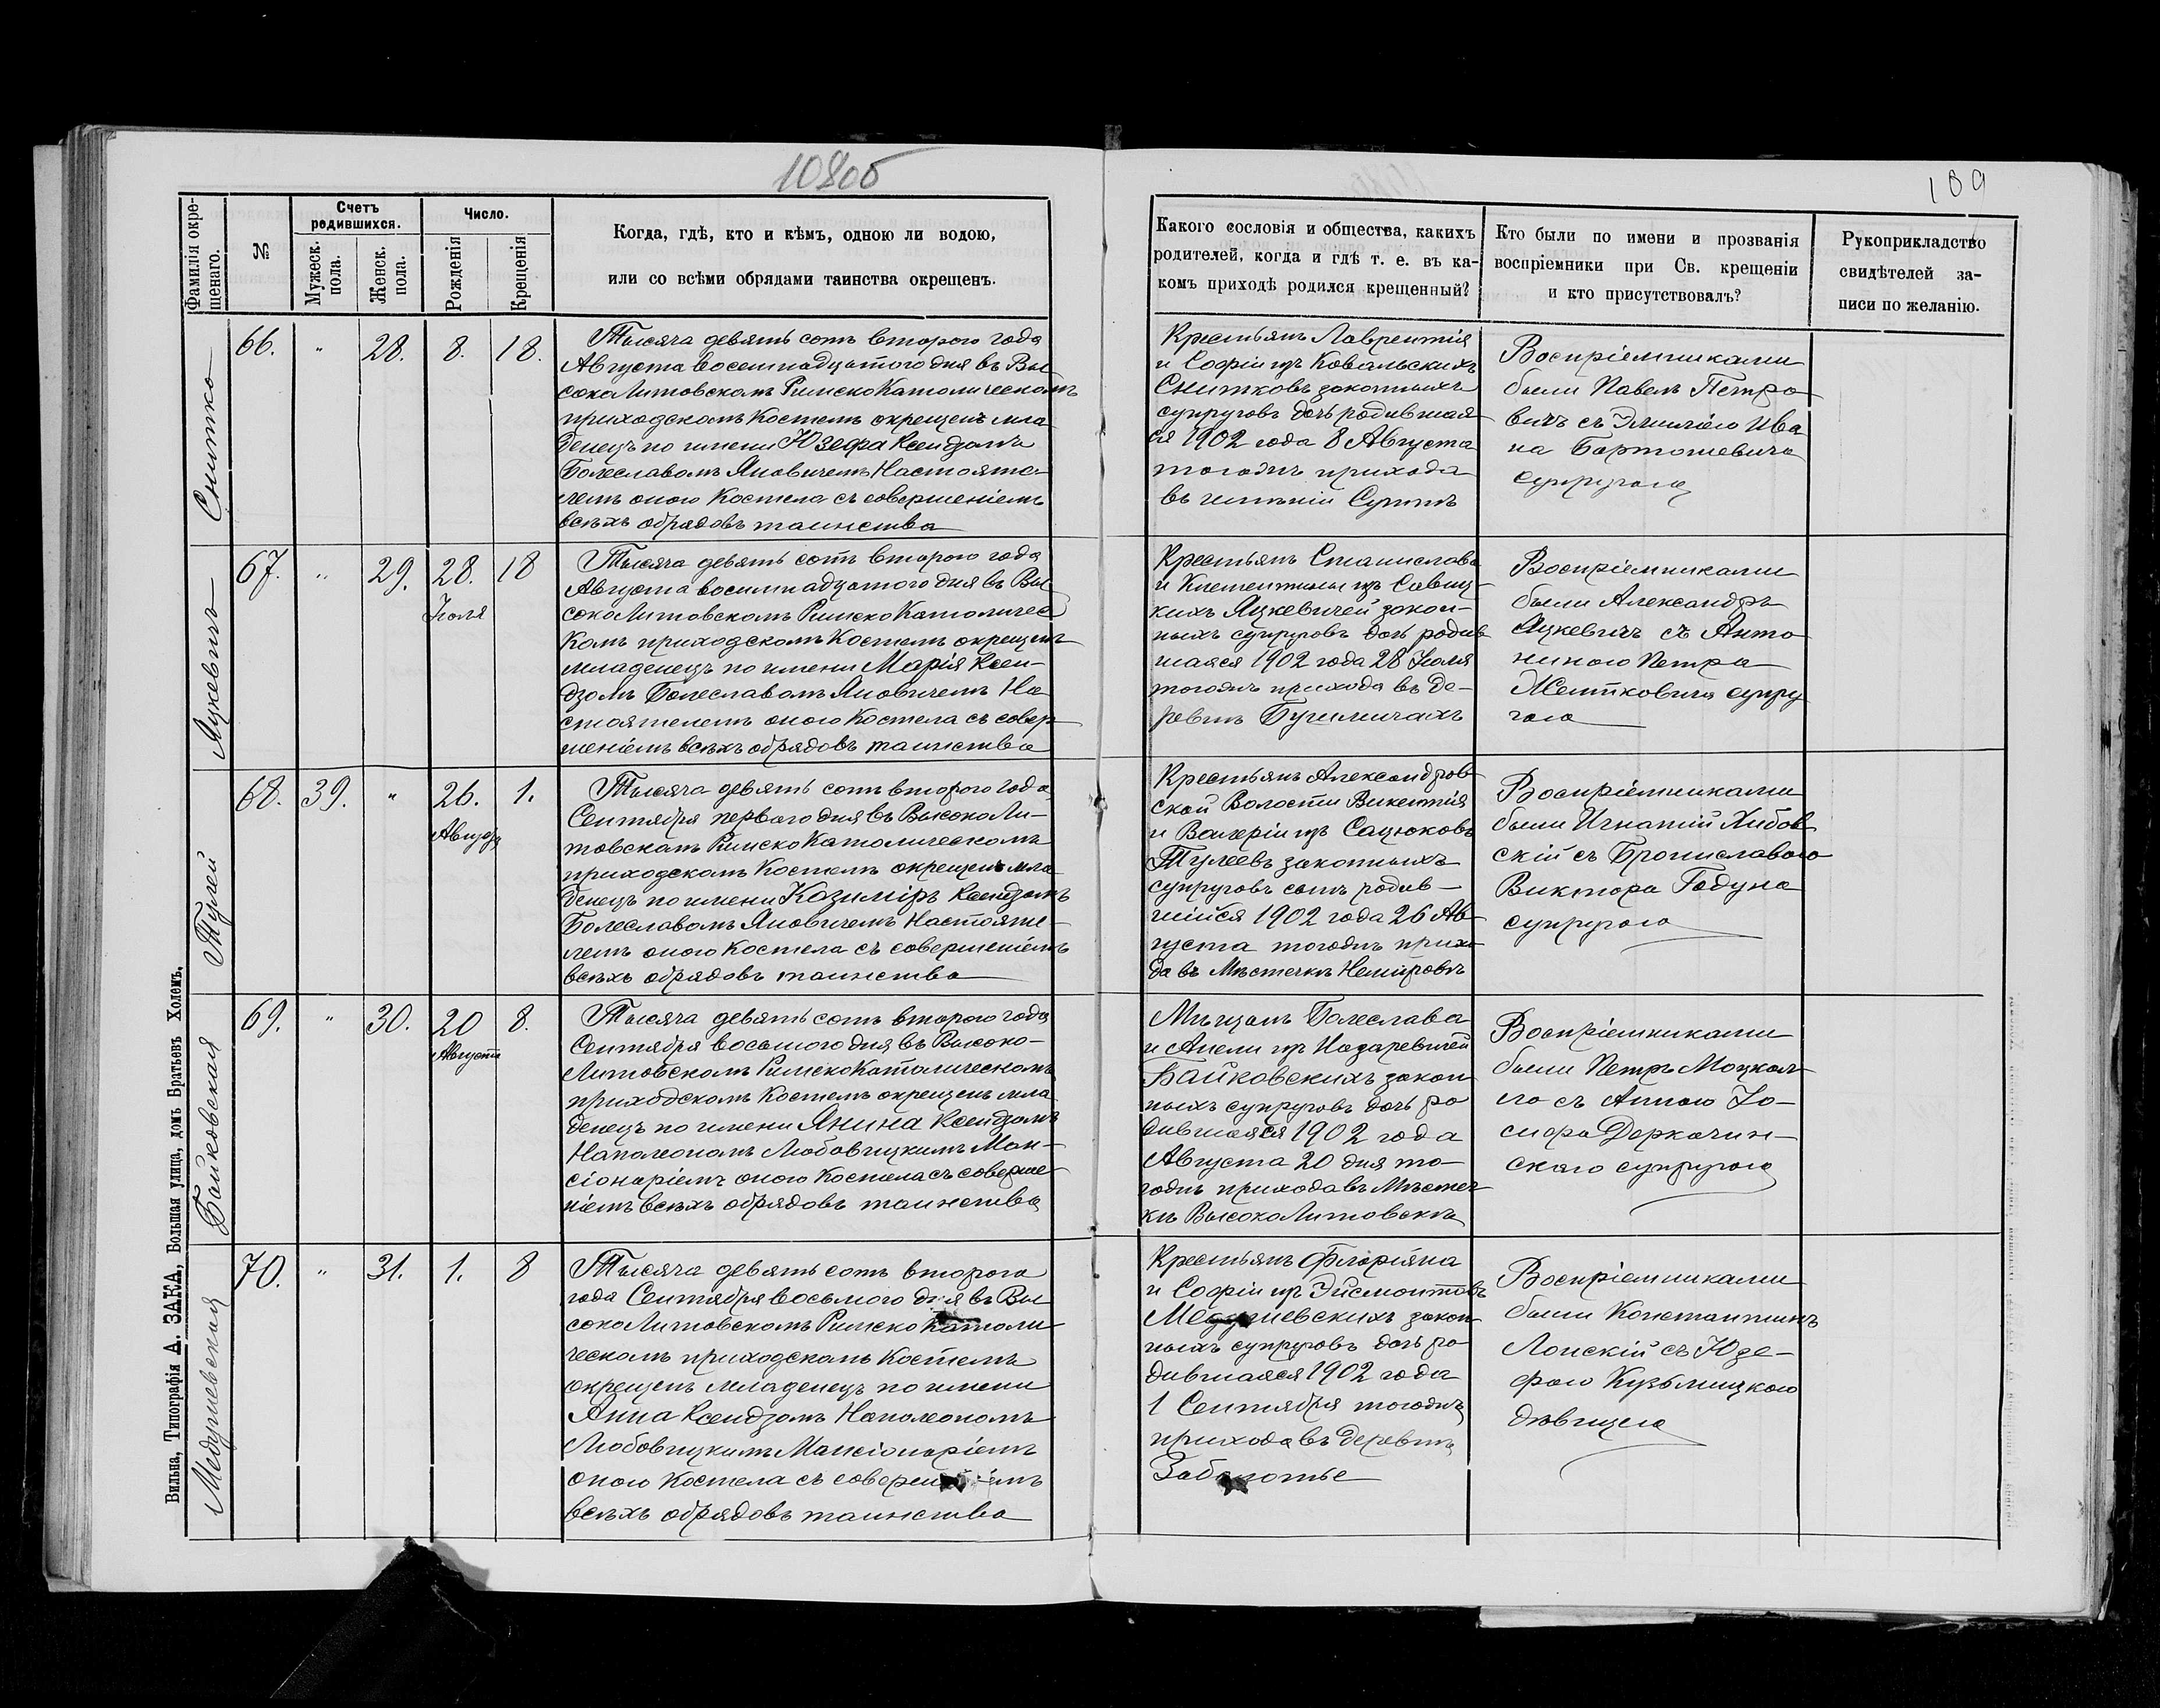 108об
109
Фамилія окре-
щеннаго.
№
Счетъ
родившихся.
Мужеск.
пола.
Женск.
пола.
Число.
Рожденія
Крещенія
Когда, гдѣ, кто и кѣмъ, одною ли водою,
или со всѣми обрядами таинства окрещенъ.
Какого сословія и общества, какихъ
родителей, когда и гдѣ т. е. въ ка-
комъ приходѣ родился крещенный?
Кто были по имени и прозванія
воспріемники при Св. крещеніи
и кто присутствовалъ?
Рукоприкладство
свидѣтелей за-
писи по желанію.
Снитко
66. " 28. 8. 18.
Тысяча девять сотъ второго года
Августа восемнадцатого дня въ Вы
сокоЛитовскомъ РимскоКатолическомъ
приходскомъ Костелѣ окрещенъ мла
денецъ по имени Юзефа Ксендзомъ
Болеславомъ Яновичемъ Настояте-
лемъ оного Костела съ совершеніемъ
всѣхъ обрядовъ таинства
Крестьянъ Лаврентія
и Софіи изъ Ковальскихъ
Снитковъ законныхъ
супруговъ дочь родившая
ся 1902 года 8 Августа
тогожъ прихода
въ имѣніи
Воспріемниками
были Павелъ Петро
вичъ съ Эмиліею Ива
на Бартошевича
супругою
Яцкевичъ
67. " 29. 28. 18
Іюля
Тысяча девять сотъ второго года
Августа восемнадцатого дня въ Вы
сокоЛитовскомъ РимскоКатоличес
комъ приходскомъ Костелѣ окрещенъ
младенецъ по имени Марія Ксен-
дзомъ Болеславомъ Яновичемъ На
стоятелемъ оного Костела съ совер
шеніемъ всѣхъ обрядовъ таинства
Крестьянъ Станислава
и Клементины изъ Савиц-
кихъ Яцкевичей закон-
ныхъ супруговъ дочь родив
шаяся 1902 года 28 Іюля
тогожъ прихода въ де-
ревнѣ
Воспріемниками
были Александръ
Яцкевичъ съ Анто
ниною Петра
Житковича супру
гою
Тулей
68. 39. " 26. 1.
Августа
Тысяча девять сотъ второго года
Сентября первого дня въ ВысокоЛи-
товскомъ РимскоКатолическомъ
приходскомъ Костелѣ окрещенъ мла
денецъ по имени Казиміръ Ксендзомъ
Болеславомъ Яновичемъ Настояте-
лемъ оного Костела съ совершеніемъ
всѣхъ обрядовъ таинства
Крестьянъ Александров
ской Волости Викентія
и Валеріи изъ Сацюковъ
Тулеевъ законныхъ
супруговъ сынъ родив-
шійся 1902 года 26 Ав-
густа тогожъ прихо
да въ Мѣстечкѣ Немировѣ
Воспріемниками
были Игнатій Хибов
скій съ Брониславою
Виктора Годуна
супругою
Байковская
69. " 30. 20 8.
Августа
Тысяча девять сотъ второго года
Сентября восьмого дня въ Высоко-
Литовскомъ РимскоКатолическомъ
приходскомъ Костелѣ окрещенъ мла
денецъ по имени Янина Ксендзомъ
Наполеономъ Любовицкимъ Ман-
сіонаріемъ оного Костела съ соверше
ніемъ всѣхъ обрядовъ таинства
Мѣщанъ Болеслава
и Анели изъ Назаревичей
Байковскихъ закон
ныхъ супруговъ дочь ро
дившаяся 1902 года
Августа 20 дня то-
гожъ прихода въ Мѣстеч
кѣ ВысокоЛитовскѣ
Воспріемниками
были Петръ
съ Анною Іо-
сифа Деркачин-
скаго супругою
Медушевская
70. " 31. 1. 8
Тысяча девять сотъ второго
года Сентября восьмого дня въ Вы
сокоЛитовскомъ Римско Католи
ческомъ приходскомъ Костелѣ
окрещенъ младенецъ по имени
Анна Ксендзомъ Наполеономъ
Любовицкимъ Мансіонаріемъ
оного Костела съ совершеніемъ
всѣхъ обрядовъ таинства
Крестьянъ Флоріяна
и Софіи изъ Эйсмонтовъ
Медушевскихъ закон
ныхъ супруговъ дочь ро
дившаяся 1902 года
1 Сентября тогожъ
прихода въ деревнѣ
Заболотье
Воспріемниками
были Константинъ
Лонскій съ Юзе-
фою Кузьмицкою
дѣвицею
Вильна, Типографія А. ЗАКА, Большая улица, домъ Братьевъ Холемъ.